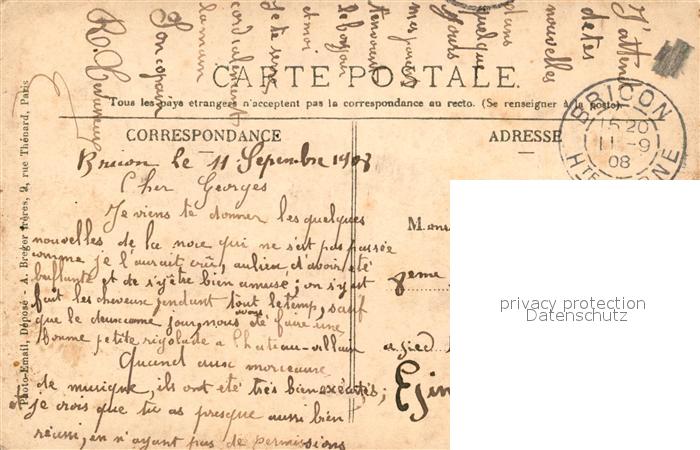 J'attend
de tes
nouvelles
dans
quelque
jours
mes parents
t'envoient
le bonjour
et moi
je te serre
cordialement
la main
Ton copain
R.
CARTE POSTALE
Tous les pays étrangers n'acceptent pas la correspondance au recto. (Se renseigner à la poste).
CORRESPONDANCE
ADRESSE
BRICON
15 20
11 -9
08
HTE MARNE
Photo-Email, Déposé - A. Breger frères, 9, rue Thénard, Paris
Bricon le 11 Sepembre 1908
Cher Georges
Je viens te donner les quelques
nouvelles de la noce qui ne s'est pas passée
comme je l'aurait crû, au lieu d'avoir été
brillante et de s'y être bien amusé; on s'y est
fait les cheveux pendant tout le temps, sauf
que le deuxieme jour, nous avons été faire une
bonne petite rigolade a Chateau-villain
Quand aux morceaux
de musique, ils ont été très bien exécutés;
et je crois que tu as presque aussi bien
réussi, en n'ayant pas de permissions
8eme
a pied
privacy protection
Datenschutz